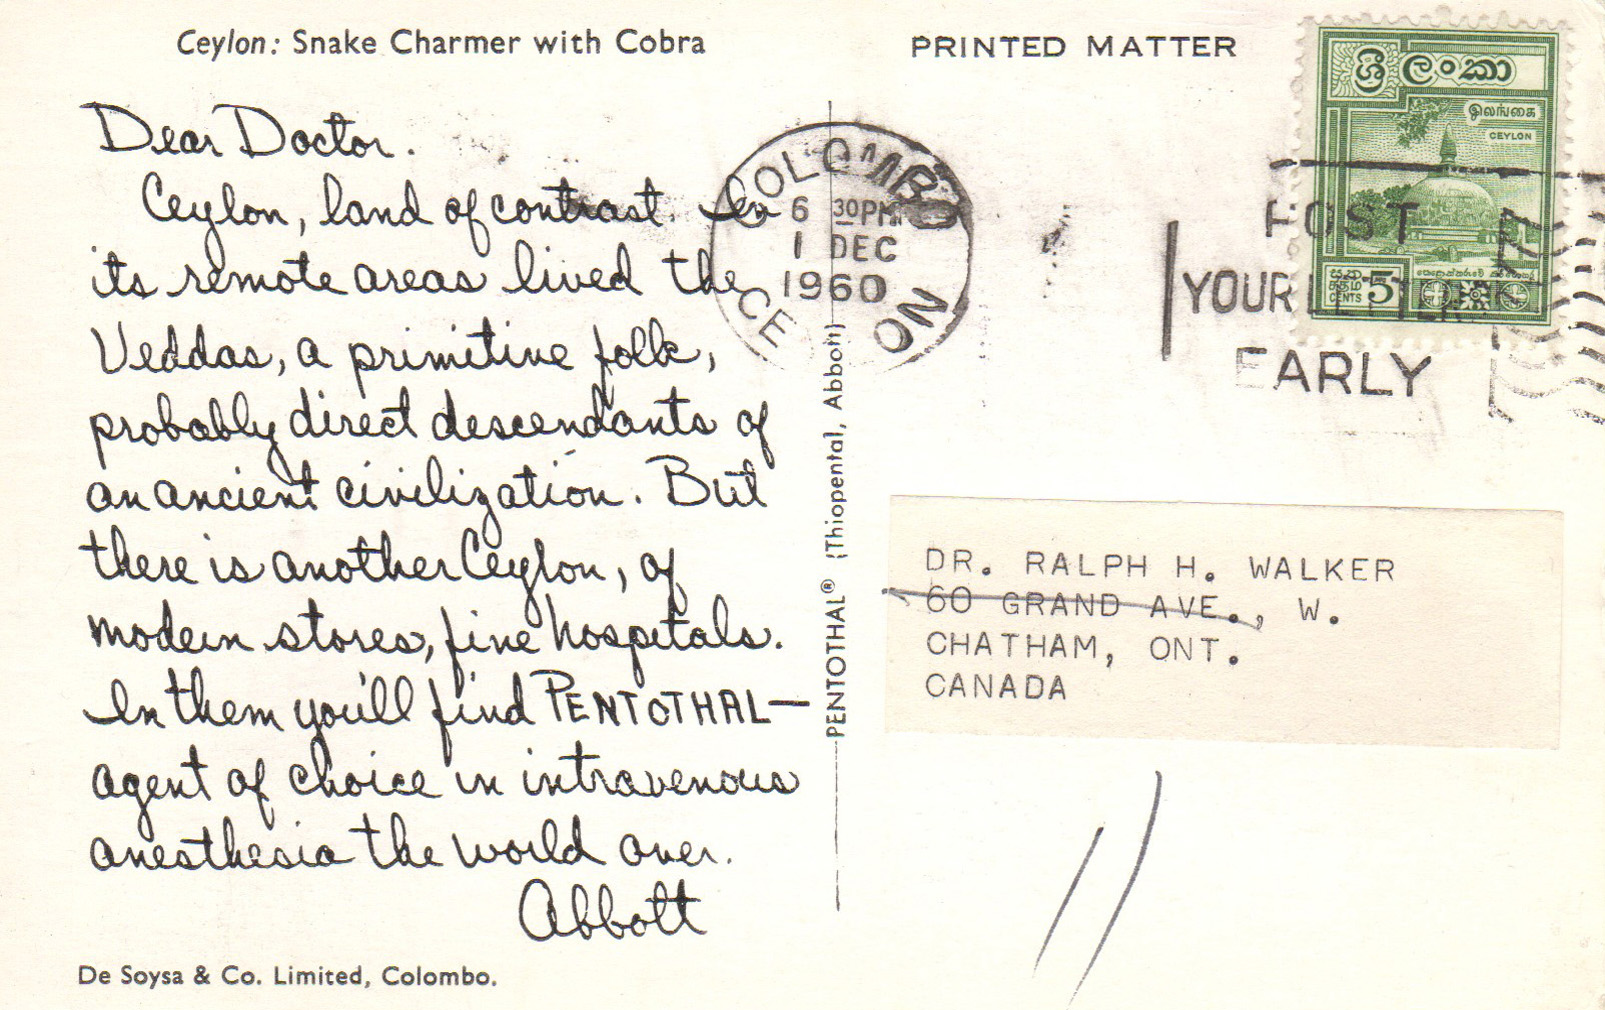 Ceylon: Snake Charmer with Cobra
PRINTED MATTER
Dear Doctor.
Ceylon, land of contrast. In
its remote areas lived the
Veddas, a primitive folk,
probably direct descendants of
an ancient civilization. But
there is another Ceylon, of
modern stores, fine hospitals.
In them you'll find PENTOTHAL—
agent of choice in intravenous
anesthesia the world over.
Abbott
De Soysa & Co. Limited, Colombo.
PENTOTHAL® (Thiopental, Abbott)
COLOMBO
6 30PM
1 DEC
1960
CE
POST
YOUR LETTERS
EARLY
ශ්‍රී ලංකා
இலங்கை
CEYLON
සත
சதம்
CENTS
5
DR. RALPH H. WALKER
60 GRAND AVE., W.
CHATHAM, ONT.
CANADA